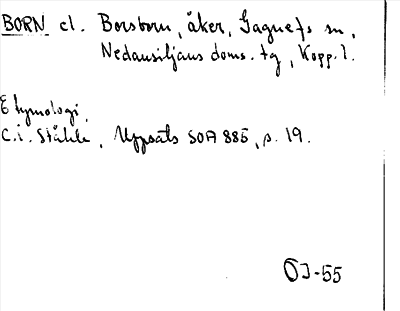 BORN el. Borsborn, åker, Gagnefs sn,
Nedansiljans doms. tg, Kopp. l.
Etymologi.
C.I. Ståhle, Uppsats SOA 885, s. 19.
ÖJ-55